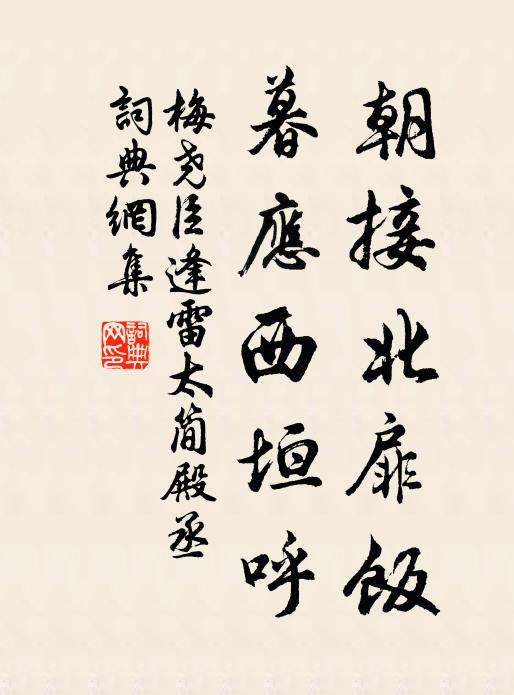 朝接北扉飯
暮應西垣呼
梅尧臣逢雷太简殿丞
詞典網集
詞典
网印